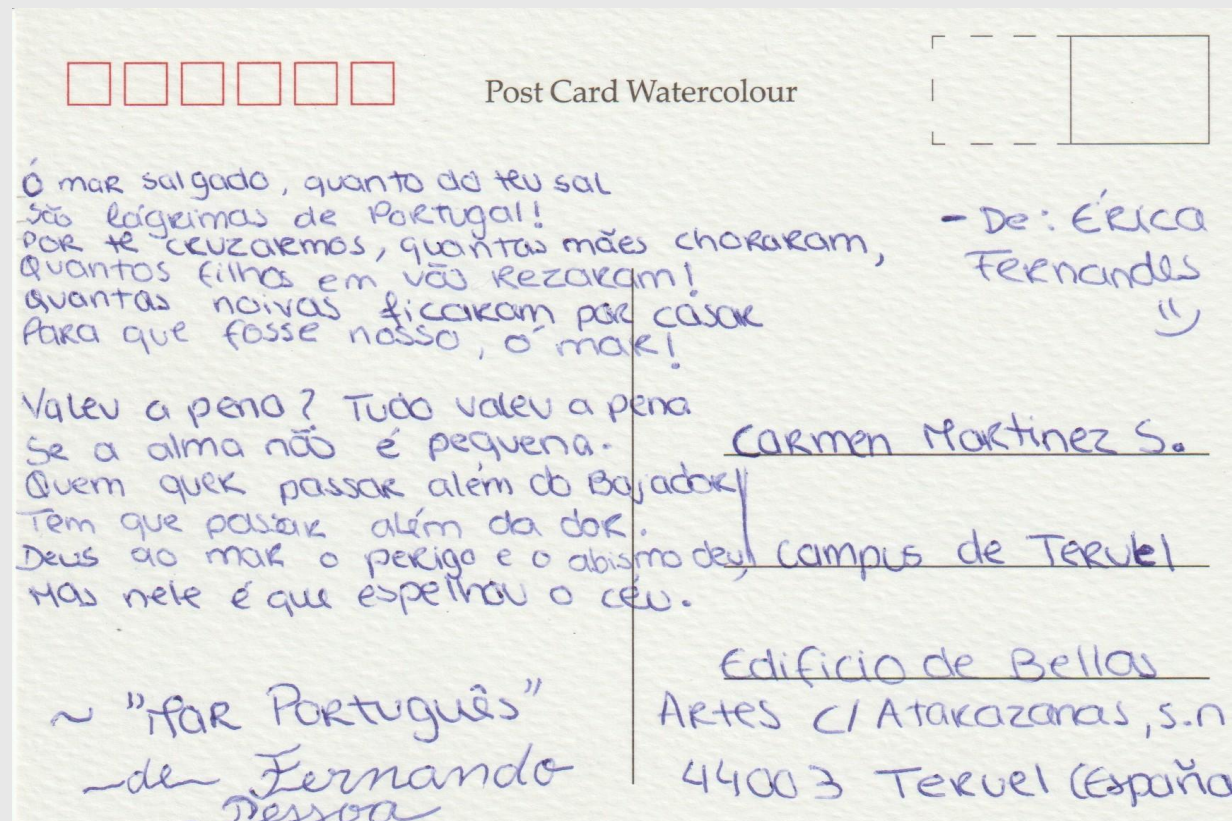 Post Card Watercolour
Ó mar salgado, quanto do teu sal
São lágrimas de Portugal!
Por te cruzaremos, quantas mães choraram,
Quantos filhos em vão rezaram!
Quantas noivas ficaram por casar
Para que fosse nosso, ó mar!
Valeu a pena? Tudo valeu a pena
Se a alma não é pequena.
Quem quer passar além do Bojador
Tem que passar além da dor.
Deus ao mar o perigo e o abismo deu,
Mas nele é que espelhou o céu.
~ "Mar Português"
~de~ Fernando
Pessoa
- De: Érica
Fernandes
Carmen Martinez S.
Campus de Teruel
Edificio de Bellas
Artes C/ Atarazanas, s.n
44003 Teruel (España